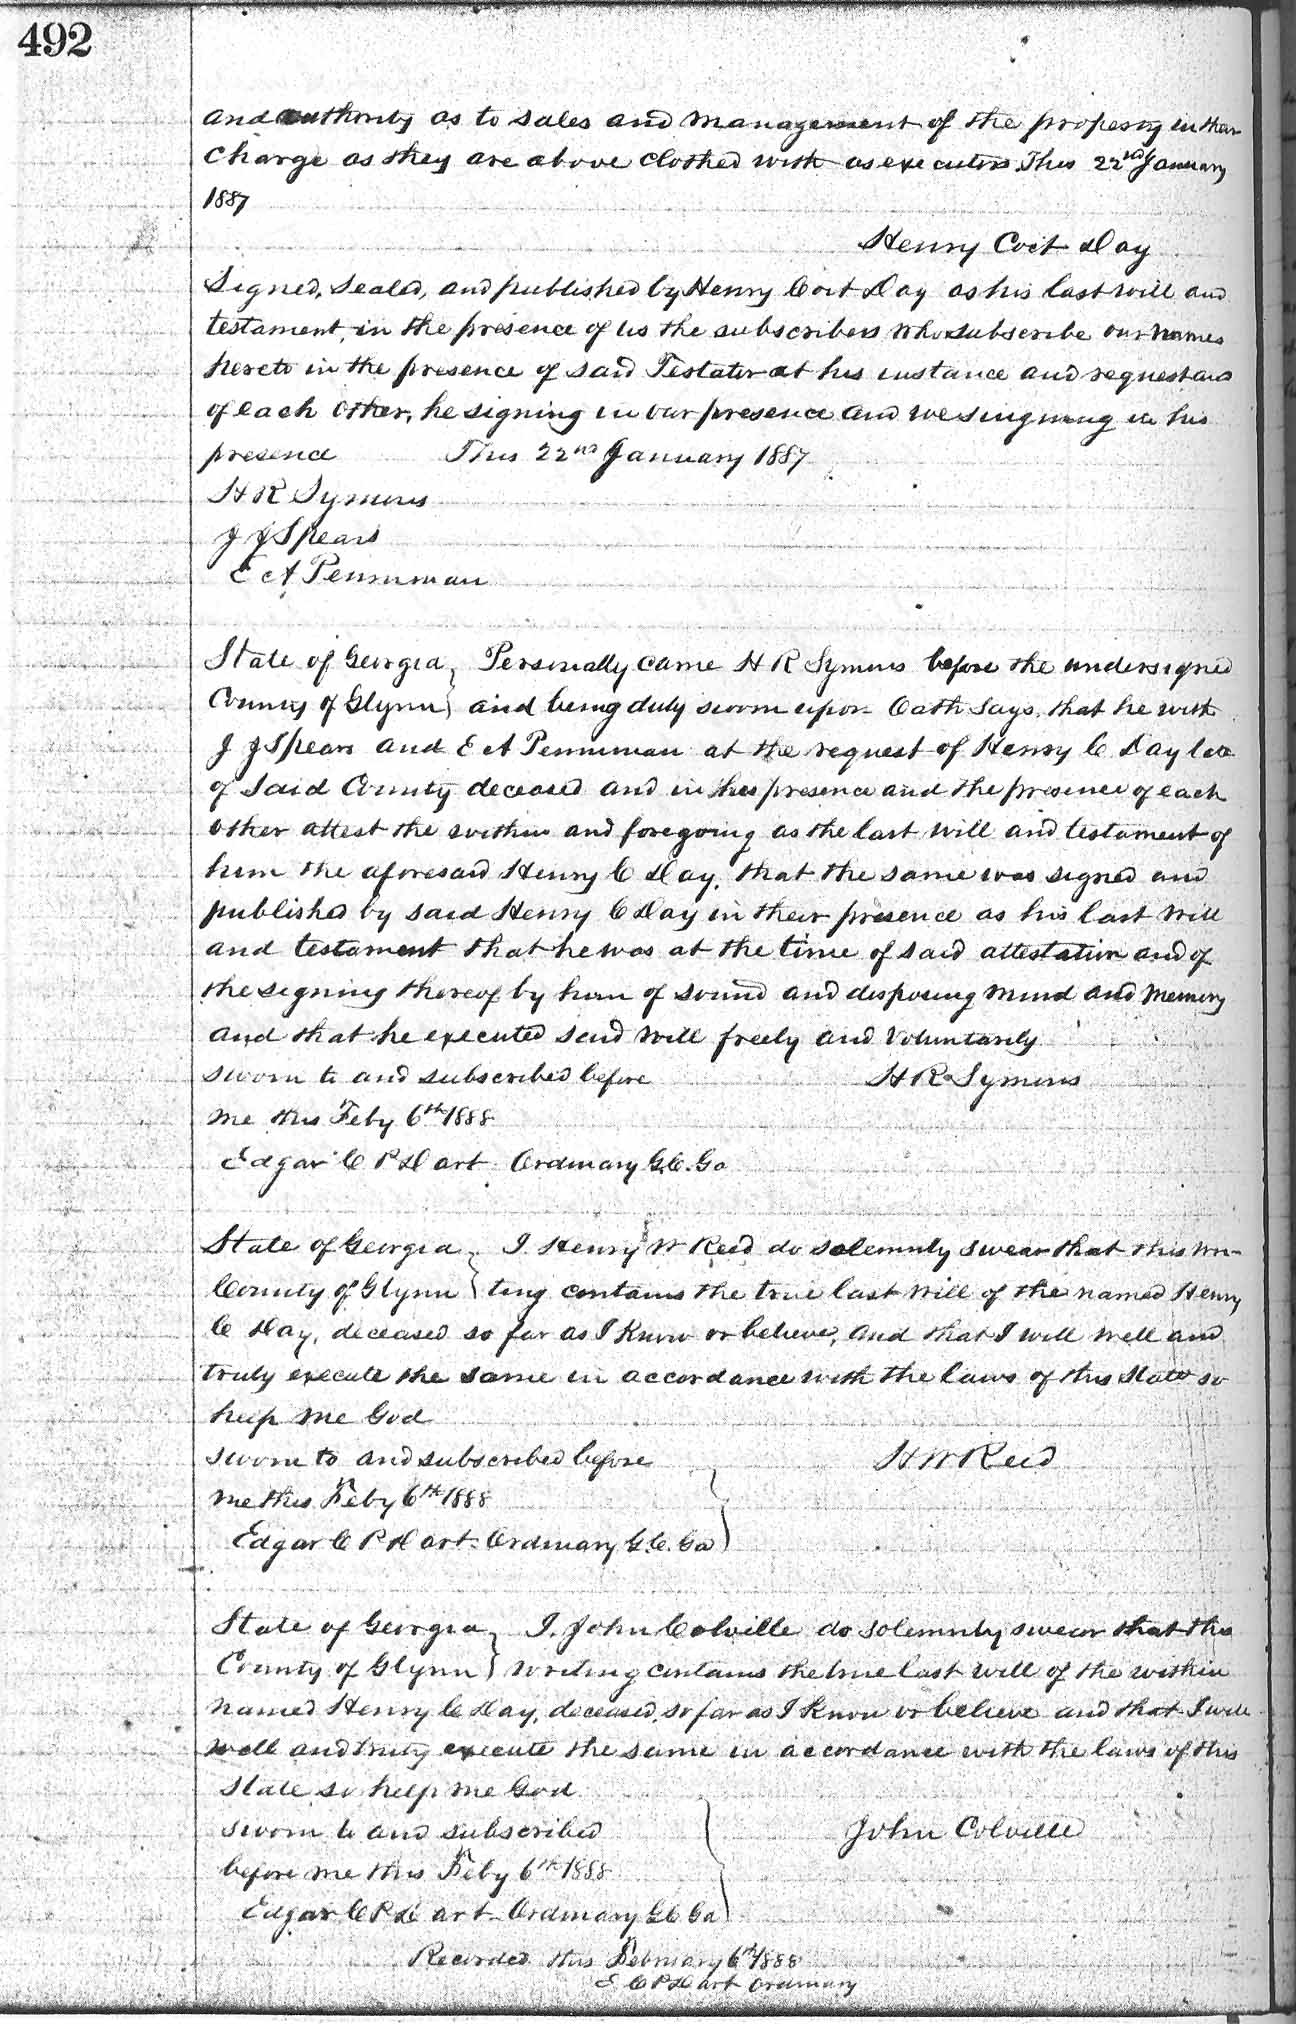 492
and authority as to sales and management of the property in their
charge as they are above clothed with as executors. This 22nd January
1887
Henry Coit Day
Signed, Sealed, and published by Henry Coit Day as his last will and
testament, in the presence of us the subscribers who subscribe our names
hereto in the presence of said Testator at his instance and request and
of each other, he signing in our presence and we singning in his
presence This 22nd January 1887
H R Symons
J J Spears
E A Penniman
State of Georgia } Personally came H R Symons before the undersigned
County of Glynn } and being duly sworn upon Oath says, that he with
J J Spears and E A Penniman at the request of Henry C Day late
of Said County deceased and in his presence and the presence of each
other attest the within and foregoing as the last will and testament of
him the aforesaid Henry C Day, that the same was signed and
published by said Henry C Day in their presence as his last will
and testament that he was at the time of said attestation and of
the signing thereof by him of sound and disposing mind and memory
and that he executed said will freely and voluntarily
sworn to and subscribed before H R Symons
me this Feby 6th 1888
Edgar C P Dart Ordinary G.C. Ga
State of Georgia } I Henry W Reed do solemnly swear that this wri-
County of Glynn } ting contains the true last will of the named Henry
C Day, deceased so far as I know or believe, and that I will well and
truly execute the same in accordance with the laws of this State so
help me God
sworn to and subscribed before H W Reed
me this Feby 6th 1888
Edgar C P Dart Ordinary G.C. Ga
State of Georgia } I, John Colville do solemnly swear that this
County of Glynn } writing contains the true last will of the within
named Henry C Day, deceased, so far as I know or believe and that I will
well and truly execute the same in accordance with the laws of this
State so help me God
sworn to and subscribed John Colville
before me this Feby 6th 1888
Edgar C P Dart Ordinary G C Ga
Recorded this February 6th 1888
E C P Dart Ordinary